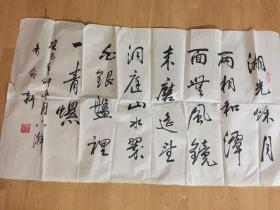 湖光秋月
兩相和潭
面無風鏡
未磨遥望
洞庭山水翠
白銀盤裡
一青螺